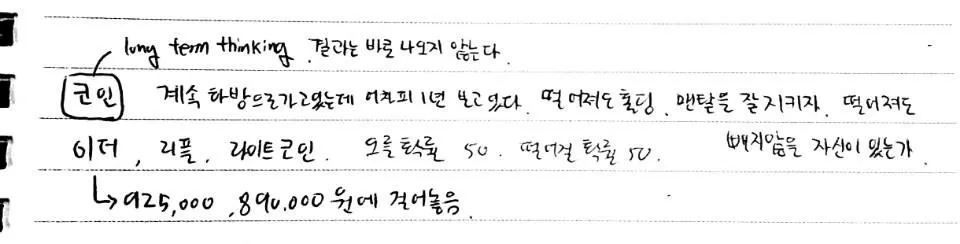 long term thinking. 결과는 바로 나오지 않는다.
코인 계속 하방으로가고있는데 어차피 1년 보고있다. 떨어져도 홀딩. 멘탈을 잘 지키자. 떨어져도
이더, 리플, 라이트코인. 오를확률 50. 떨어질 확률 50. 빼지않을 자신이 있는가.
↳ 925,000, 890,000원에 걸어놓음.